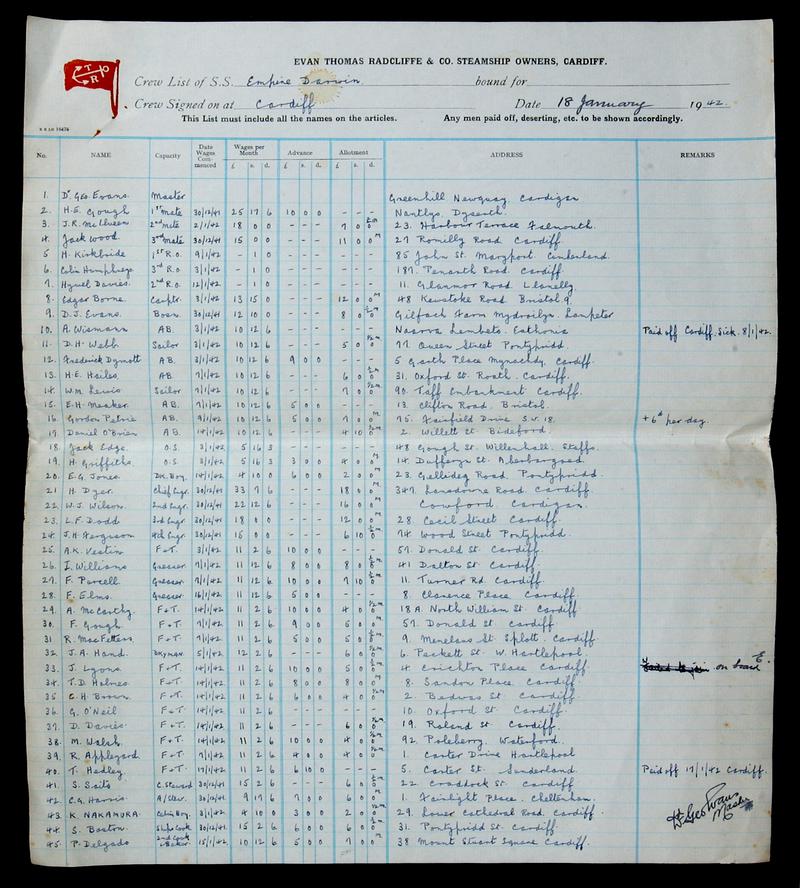 EVAN THOMAS RADCLIFFE & CO. STEAMSHIP OWNERS, CARDIFF.
T R O
Crew List of S.S. Empire Darwin bound for
Crew Signed on at Cardiff Date 18 January 1942.
This List must include all the names on the articles. Any men paid off, deserting, etc. to be shown accordingly.
No. NAME Capacity Date Wages Commenced Wages per Month Advance Allotment ADDRESS REMARKS
£ s. d. £ s. d. £ s. d.
1. Dd. Geo. Evans. Master Greenhill Newquay Cardigan
2. H.E. Gough 1st Mate 30/12/41 25 17 6 10 0 0 - - - Nantlys, Dyserth.
3. J.R. 2nd Mate 2/1/42 18 0 0 - - - 7 0 0 23. Harbour Terrace Falmouth.
4. Jack Wood. 3rd Mate 30/12/41 15 0 0 - - - 11 0 0 M 27 Romilly Road Cardiff.
5 H. Kirkbride 1st R.O. 9/1/42 - 1 0 - - - - - - 85 John St. Maryport Cumberland.
6. Colin Humphreys 3rd R.O. 3/1/42 - 1 0 - - - - - - 187. Penarth Road. Cardiff.
7. Hywel Davies. 2nd R.O. 12/1/42 - 1 0 - - - - - - 11. Glanmor Road Llanelly.
8. Edgar Borne. Carptr. 3/1/42 13 15 0 - - - 12 0 0 M 48 Kewstoke Road Bristol 9.
9. D.J. Evans. Bosn. 30/12/41 12 10 0 - - - 8 0 0 Gilfach Farm Mydroilyn. Lampeter
10. A. Wismann A.B. 3/1/42 10 12 6 - - - - - - Narva Lembats. Esthonia Paid off Cardiff. Sick. 8/1/42.
11. D.H. Webb Sailor 3/1/42 10 12 6 - - - 5 0 0 77. Queen Street Pontypridd.
12. Frederick Dymott A.B. 3/1/42 10 12 6 9 0 0 - - - 5 Garth Place Mynachdy. Cardiff.
13. H.E. Hailes A.B. 7/1/42 10 12 6 - - - 6 0 0 31. Oxford St. Roath. Cardiff.
14. W.M. Lewis Sailor 7/1/42 10 12 6 - - - 7 0 0 90. Taff Embankment Cardiff.
15. E.H. Meaker. A.B. 7/1/42 10 12 6 5 0 0 - - - 13. Clifton Road. Bristol.
16. Gordon Petrie A.B. 9/1/42 10 12 6 5 0 0 7 0 0 M 75. Fairfield Drive S.W.18. +6d per day.
17 Daniel O'Brien A.B. 14/1/42 10 12 6 - - - 4 10 0 2. Willett St. Bideford.
18. Jack Edge. O.S. 3/1/42 5 16 3 - - - - - - 48 Gough St. Willenhall. Staffs.
19. H. Griffiths O.S. 3/1/42 5 16 3 3 0 0 4 0 0 M 14. Dufferyn St. Aberbargoed.
20. E.G. Jones Dk. Boy. 14/1/42 4 10 0 6 0 0 2 0 0 M 23. Gellideg Road. Pontypridd.
21 H. Dyer. Chief Engr. 30/12/41 33 7 6 - - - 18 0 0 M 347. Lansdowne Road. Cardiff.
22. W.J. Wilson. 2nd Engr. 30/12/41 22 12 6 - - - 16 0 0 Cardigan.
23. L.F. Dodd 3rd Engr 30/12/41 18 0 0 - - - 12 0 0 M 28 Cecil Street Cardiff.
24. J.H. Ferguson 4th Engr. 30/12/41 15 0 0 - - - 6 10 0 M 74 Wood Street Pontypridd.
25. A.K. Vestin F&T. 3/1/42 11 2 6 10 0 0 - - - 57. Donald St. Cardiff.
26. I. Williams Greaser 7/1/42 11 12 6 8 0 0 8 0 0 41 Dalton St. Cardiff.
27. F. Purcell Greaser. 7/1/42 11 12 6 10 0 0 7 10 0 M 11. Turner Rd. Cardiff.
28. F. Elms. Greaser. 16/1/42 11 12 6 5 0 0 - - - 8. Clarence Place Cardiff.
29. A. McCarthy. F&T. 14/1/42 11 2 6 10 0 0 4 0 0 18A. North William St. Cardiff
30. F. Gough F&T. 7/1/42 11 2 6 9 0 0 5 0 0 57. Donald St. Cardiff.
31 R. MacFetters F&T. 7/1/42 11 2 6 5 0 0 5 0 0 9. Menelaus St. Splott. Cardiff.
32. J.A. Hand. Dkyman. 5/1/42 12 2 6 - - - 6 0 0 6. Packett St. W. Hartlepool.
33. J. Lyons. F&T. 14/1/42 11 2 6 10 0 0 5 0 0 4 Crichton Place Cardiff on board E.
34. T.D. Holmes F&T. 14/1/42 11 2 6 8 0 0 8 0 0 8. Sandon Place. Cardiff.
35 C.H. Brown F&T. 14/1/42 11 2 6 6 0 0 4 0 0 2. Bedwas St. Cardiff.
36 G. O'Neil F&T. 14/1/42 11 2 6 - - - - - - 10. Oxford St. Cardiff.
37. D. Davies F&T. 14/1/42 11 2 6 - - - 6 0 0 19. Roland St. Cardiff.
38. M. Walsh. F&T. 14/1/42 11 2 6 10 0 0 4 0 0 92. Poleberry. Waterford.
39. R. Appleyard F&T. 7/1/42 11 2 6 4 0 0 4 0 0 M 1. Carter Drive Hartlepool
40. T. Hedley. F&T. 17/1/42 11 2 6 6 10 0 - - - 5. Carter St. Sunderland. Paid off 17/1/42 Cardiff.
41. S. Saits C. Steward 30/12/41 15 2 6 - - - 6 0 0 22. Craddock St. Cardiff
42. C.G. Harris A/Stew. 30/12/41 9 17 6 7 0 0 6 0 0 1. Fairlight Place. Cheltenham.
43. K. NAKAMURA. Cabin Boy. 3/1/42 4 10 0 3 0 0 2 0 0 29. Lower Cathedral Road. Cardiff.
44. S. Boston. Ships Cook 30/12/41 15 2 6 6 0 0 6 0 0 M 31. Pontypridd St. Cardiff.
45. P. Delgado 2nd Cook & Baker. 15/1/42 10 12 6 5 0 0 7 0 0 38 Mount Stuart Square Cardiff.
Dd Geo Evans
Master